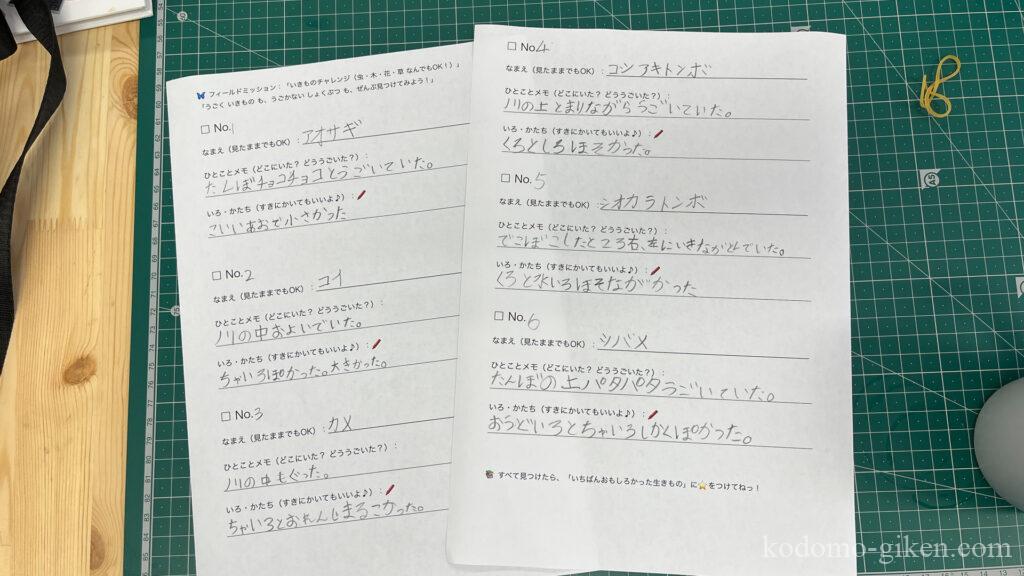 フィールドミッション：「いきものチャレンジ（虫・木・花・草 なんでもOK！）」
「うごく いきもの も、うごかない しょくぶつ も、ぜんぶ見つけてみよう！」
No.1
なまえ（見たままでもOK）：アオサギ
ひとことメモ（どこにいた？ どううごいた？）：
たんぼチョコチョコとうごいていた。
いろ・かたち（すきにかいてもいいよ♪）：
こいいあおで小さかった
No.2
なまえ（見たままでもOK）：コイ
ひとことメモ（どこにいた？ どううごいた？）：
川の中およいでいた。
いろ・かたち（すきにかいてもいいよ♪）：
ちゃいろぽかった。大きかった。
No.3
なまえ（見たままでもOK）：カメ
ひとことメモ（どこにいた？ どううごいた？）：
川の中もぐった。
いろ・かたち（すきにかいてもいいよ♪）：
ちゃいろとおれんじまるこかった。
No.4
なまえ（見たままでもOK）：コシアキトンボ
ひとことメモ（どこにいた？ どううごいた？）：
川の上とまりながらうごいていた。
いろ・かたち（すきにかいてもいいよ♪）：
くろとしろほそかった。
No.5
なまえ（見たままでもOK）：シオカラトンボ
ひとことメモ（どこにいた？ どううごいた？）：
でこぼこしたところ右、左にいきながら
いろ・かたち（すきにかいてもいいよ♪）：
くろと水いろほそながかった
No.6
なまえ（見たままでもOK）：ツバメ
ひとことメモ（どこにいた？ どううごいた？）：
たんぼの上パタパタうごいていた。
いろ・かたち（すきにかいてもいいよ♪）：
おうどいろとちゃいろしかくぽかった。
すべて見つけたら、「いちばんおもしろかった生きもの」に⭐をつけてねっ！
A5
kodomo-giken.com